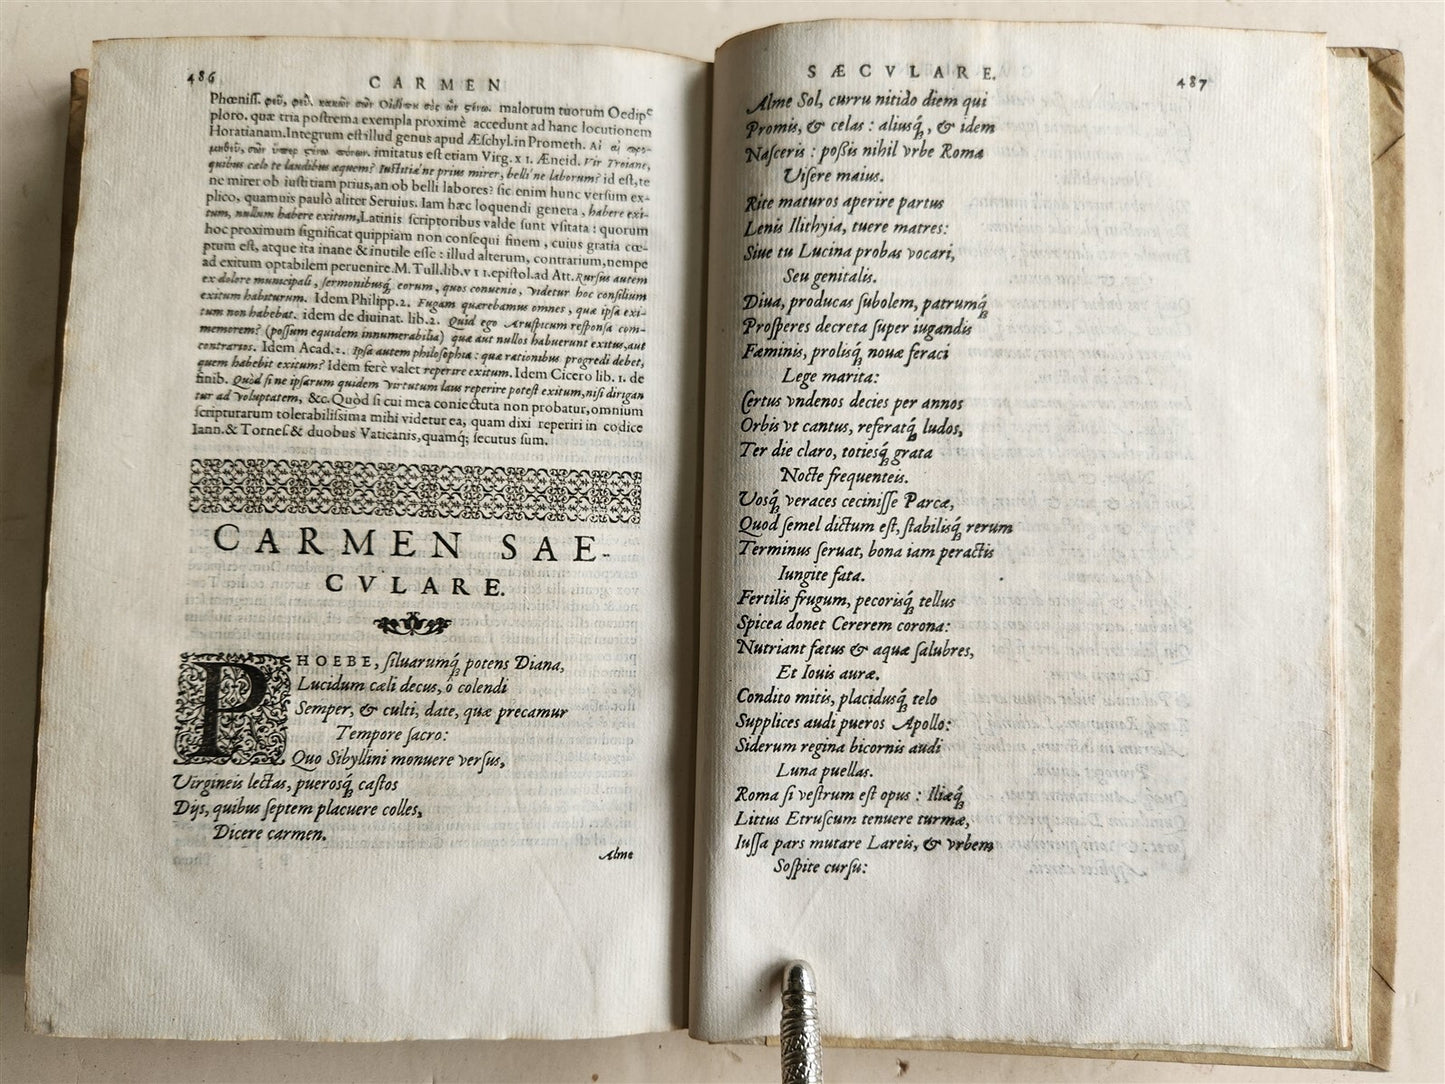 486
CARMEN
Phœniss. φεῦ, φεῦ. κακῶν σῶν Οἰδίπου malorum tuorum Oedipe
ploro. quæ tria postrema exempla proximè accedunt ad hanc locutionem
Horatianam. Integrum est illud genus apud Æschyl. in Prometh.
imitatus est etiam Virg. XI. Æneid. Vir Troiane,
quibus cælo te laudibus æquem? Iustitiæ ne prius mirer, belli ne laborum? id est, te
ne mirer ob iustitiam prius, an ob belli labores? sic enim hunc versum ex-
plico, quamuis paulò aliter Seruius. Iam hæc loquendi genera, habere exi-
tum, nullum habere exitum, Latinis scriptoribus valde sunt vsitata: quorum
hoc proximum significat quippiam non consequi finem, cuius gratia cœ-
ptum est, atque ita inane & inutile esse: illud alterum, contrarium, nempe
ad exitum optabilem peruenire. M. Tull. lib. VII. epistol. ad Att. Rursus autem
ex dolore municipali, sermonibusq́; eorum, quos conuenio, videtur hoc consilium
exitum habiturum. Idem Philipp. 2. Fugam quærebamus omnes, quæ ipsa exi-
tum non habebat. idem de diuinat. lib. 2. Quid ego Aruspicum responsa com-
memorem? (possum equidem innumerabilia) quæ aut nullos habuerunt exitus, aut
contrarios. Idem Acad. 2. Ipsa autem philosophia: quæ rationibus progredi debet,
quem habebit exitum? Idem ferè valet reperire exitum. Idem Cicero lib. 1. de
finib. Quòd si ne ipsarum quidem virtutum laus reperire potest exitum, nisi dirigan
tur ad voluptatem, &c. Quòd si cui mea coniectuta non probatur, omnium
scripturarum tolerabilissima mihi videtur ea, quam dixi reperiri in codice
Iann. & Tornes. & duobus Vaticanis, quamq́; secutus sum.
CARMEN SAE-
CVLARE.
PHOEBE, siluarumq́; potens Diana,
Lucidum cæli decus, ô colendi
Semper, & culti, date, quæ precamur
Tempore sacro:
Quo Sibyllini monuere versus,
Virgineis lectas, puerosq́; castos
Dijs, quibus septem placuere colles,
Dicere carmen.
Alme
SÆCVLARE.
487
Alme Sol, curru nitido diem qui
Promis, & celas: aliusq́;, & idem
Nasceris: possis nihil vrbe Roma
Visere maius.
Rite maturos aperire partus
Lenis Ilithyia, tuere matres:
Siue tu Lucina probas vocari,
Seu genitalis.
Diua, producas subolem, patrumq́;
Prosperes decreta super iugandis
Fæminis, prolisq́; nouæ feraci
Lege marita:
Certus vndenos decies per annos
Orbis vt cantus, referatq́; ludos,
Ter die claro, totiesq́; grata
Nocte frequenteis.
Vosq́; veraces cecinisse Parcæ,
Quod semel dictum est, stabilisq́; rerum
Terminus seruat, bona iam peractis
Iungite fata.
Fertilis frugum, pecorisq́; tellus
Spicea donet Cererem corona:
Nutriant fætus & aquæ salubres,
Et Iouis auræ.
Condito mitis, placidusq́; telo
Supplices audi pueros Apollo:
Siderum regina bicornis audi
Luna puellas.
Roma si vestrum est opus: Iliæq́;
Littus Etruscum tenuere turmæ,
Iussa pars mutare Lareis, & vrbem
Sospite cursu: